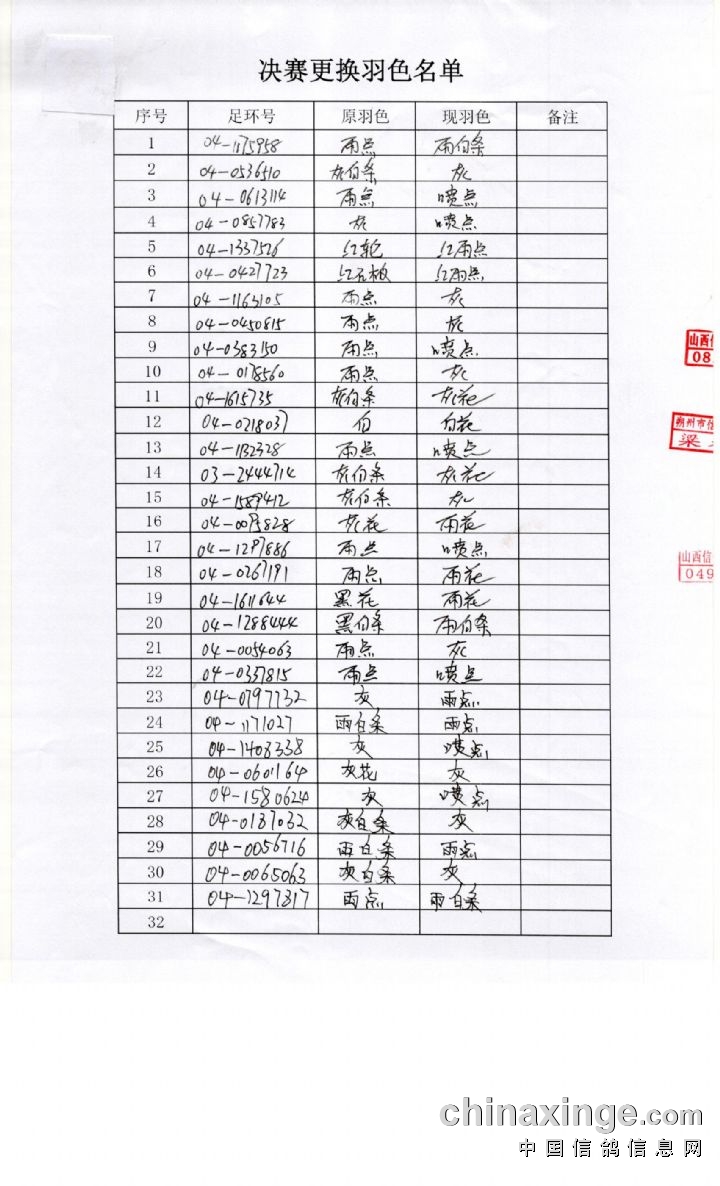 决赛更换羽色名单
序号 足环号 原羽色 现羽色 备注
1 04-1175958 雨点 雨白条
2 04-0536510 灰白条 灰
3 04-0613114 雨点 喷点
4 04-0857783 灰 喷点
5 04-1337526 红轮 红雨点
6 04-0427723 红瓦板 红雨点
7 04-1163105 雨点 灰
8 04-0450815 雨点 灰
9 04-0383150 雨点 喷点
10 04-0178560 雨点 灰
11 04-1615735 灰白条 灰花
12 04-0218037 白 白花
13 04-1132328 雨点 喷点
14 03-2444714 灰白条 灰花
15 04-1589412 灰白条 灰
16 04-0095828 灰花 雨花
17 04-1297886 雨点 喷点
18 04-0267191 雨点 雨花
19 04-1611644 黑花 雨花
20 04-1288444 黑白条 雨白条
21 04-0054063 雨点 灰
22 04-0337815 雨点 喷点
23 04-0797732 灰 雨点
24 04-1171027 雨白条 雨点
25 04-1408338 灰 喷点
26 04-0601164 灰花 灰
27 04-1580624 灰 喷点
28 04-0137032 灰白条 灰
29 04-0056716 雨白条 雨点
30 04-0065063 灰白条 灰
31 04-1297317 雨点 雨白条
32
山西信
08
朔州市信
梁
山西信
049
chinaxinge.com
中国信鸽信息网